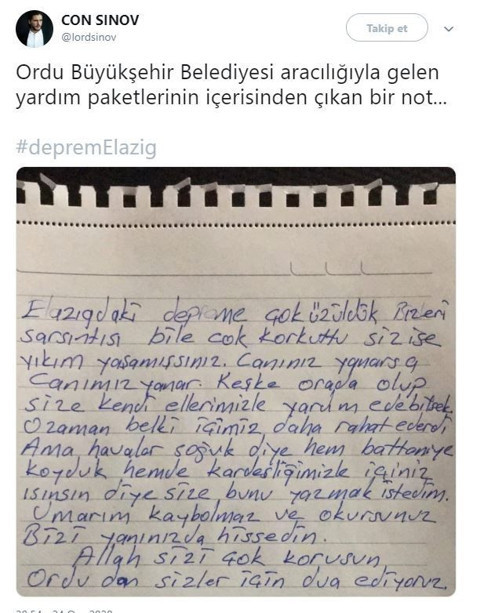 CON SINOV
@lordsinov
Takip et
Ordu Büyükşehir Belediyesi aracılığıyla gelen
yardım paketlerinin içerisinden çıkan bir not...
#depremElazig
Elazığdaki deprame çok üzüldük Bizleri
sarsıntısı bile çok korkuttu siz ise
yıkım yaşamışsınız. Canınız yanarsa
Canımız yanar. Keşke orada olup
size kendi ellerimizle yardım edebilsek.
Ozaman belki içimiz daha rahat ederdi
Ama havalar soğuk diye hem battaniye
koyduk hemde kardeşliğimizle içiniz
ısınsın diye size bunu yazmak istedim.
Umarım kaybolmaz ve okursunuz
Bizi yanınızda hissedin.
Allah sizi çok korusun
Ordu dan sizler için dua ediyoruz.